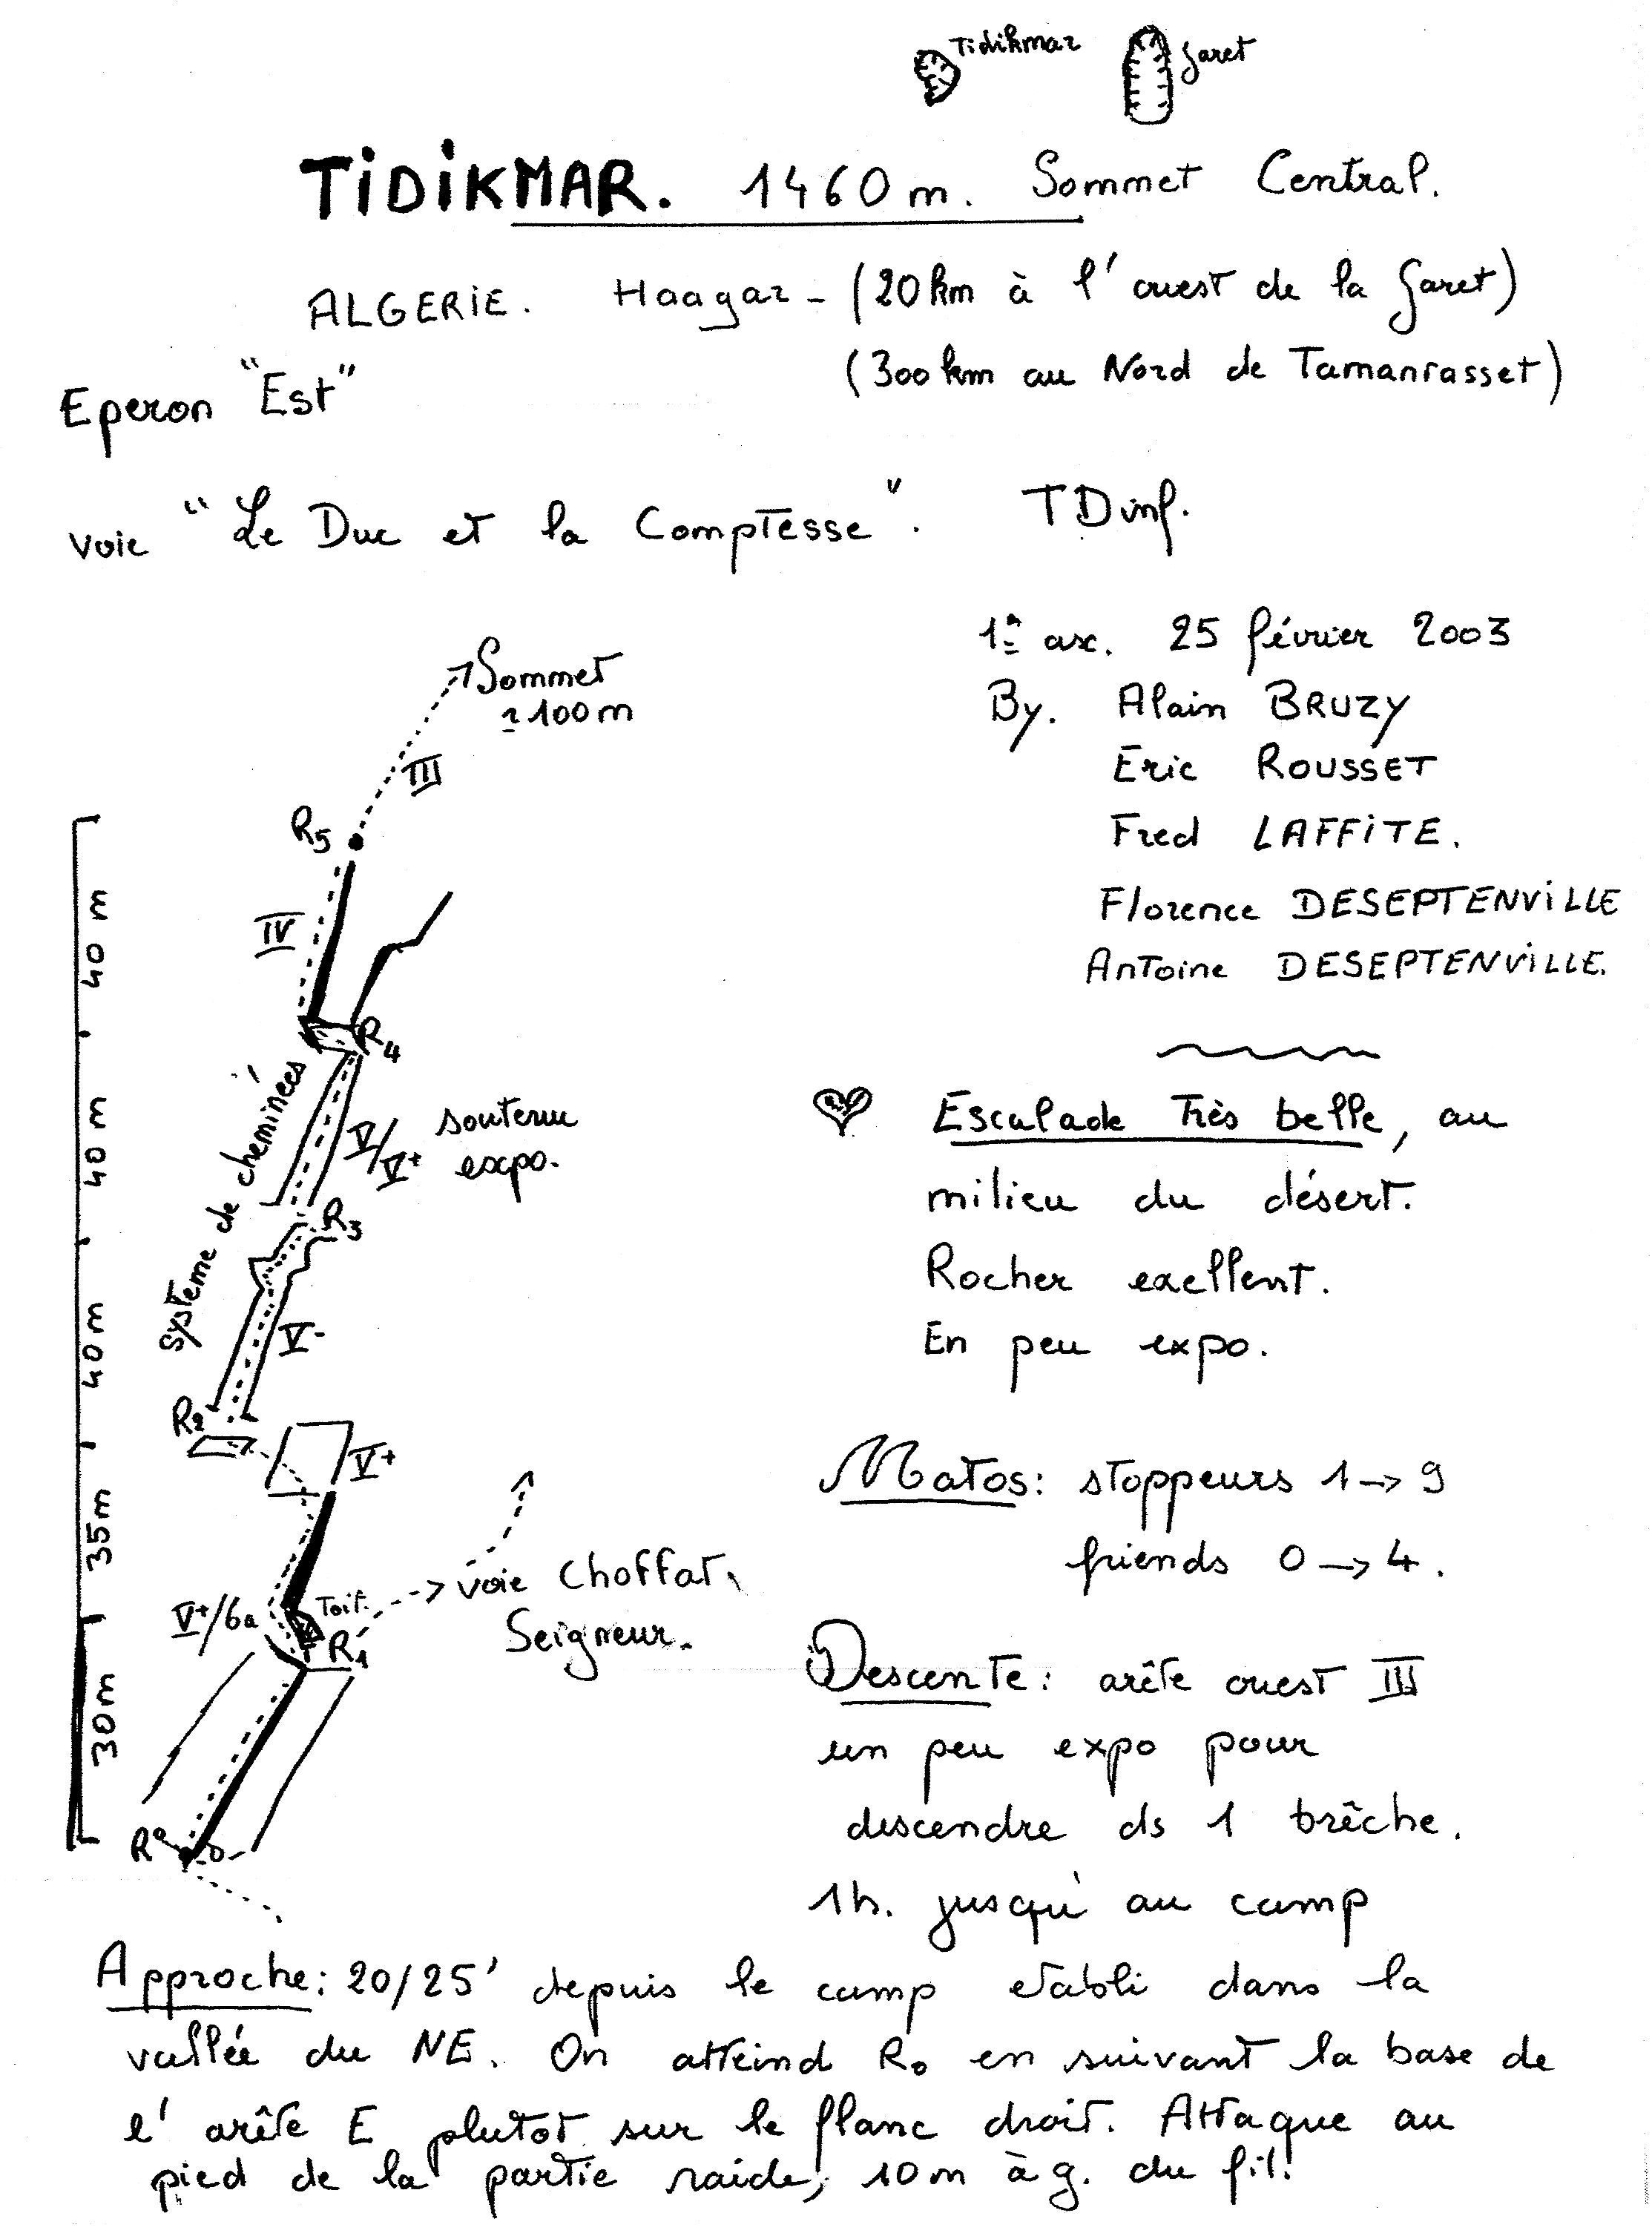 Tidikmar Garet
TiDiKMAR. 1460 m. Sommet Central.
ALGERiE. Haagar - (20 km à l'ouest de la Garet)
(300 km au Nord de Tamanrasset)
Eperon "Est"
voie "Le Duc et la Comptesse". TD inf.
1è asc. 25 février 2003
By. Alain BRUZY
Eric ROUSSET
Fred LAFFiTE.
Florence DESEPTENViLLE
Antoine DESEPTENViLLE.
Sommet
≃100 m
III
R5
40 m
IV
R4
système de cheminées
40 m
V/V+
soutenu
expo.
R3
40 m
V-
R2
V+
35 m
V+/6a
Toit.
R1
voie Choffat,
Seigneur.
30 m
R0
Escalade Très belle, au
milieu du désert.
Rocher exellent.
En peu expo.
Matos: stoppeurs 1→9
friends 0→4.
Descente: arête ouest III
un peu expo pour
descendre ds 1 brêche.
1h. jusqu' au camp
Approche: 20/25' depuis le camp etabli dans la
vallée du NE. On atteind R0 en suivant la base de
l' arête E plutot sur le flanc droit. Attaque au
pied de la partie raide, 10 m à g. du fil!